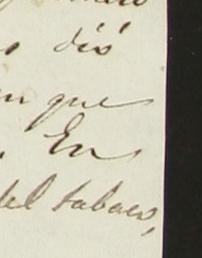 dió
que
. En
del tabaco,